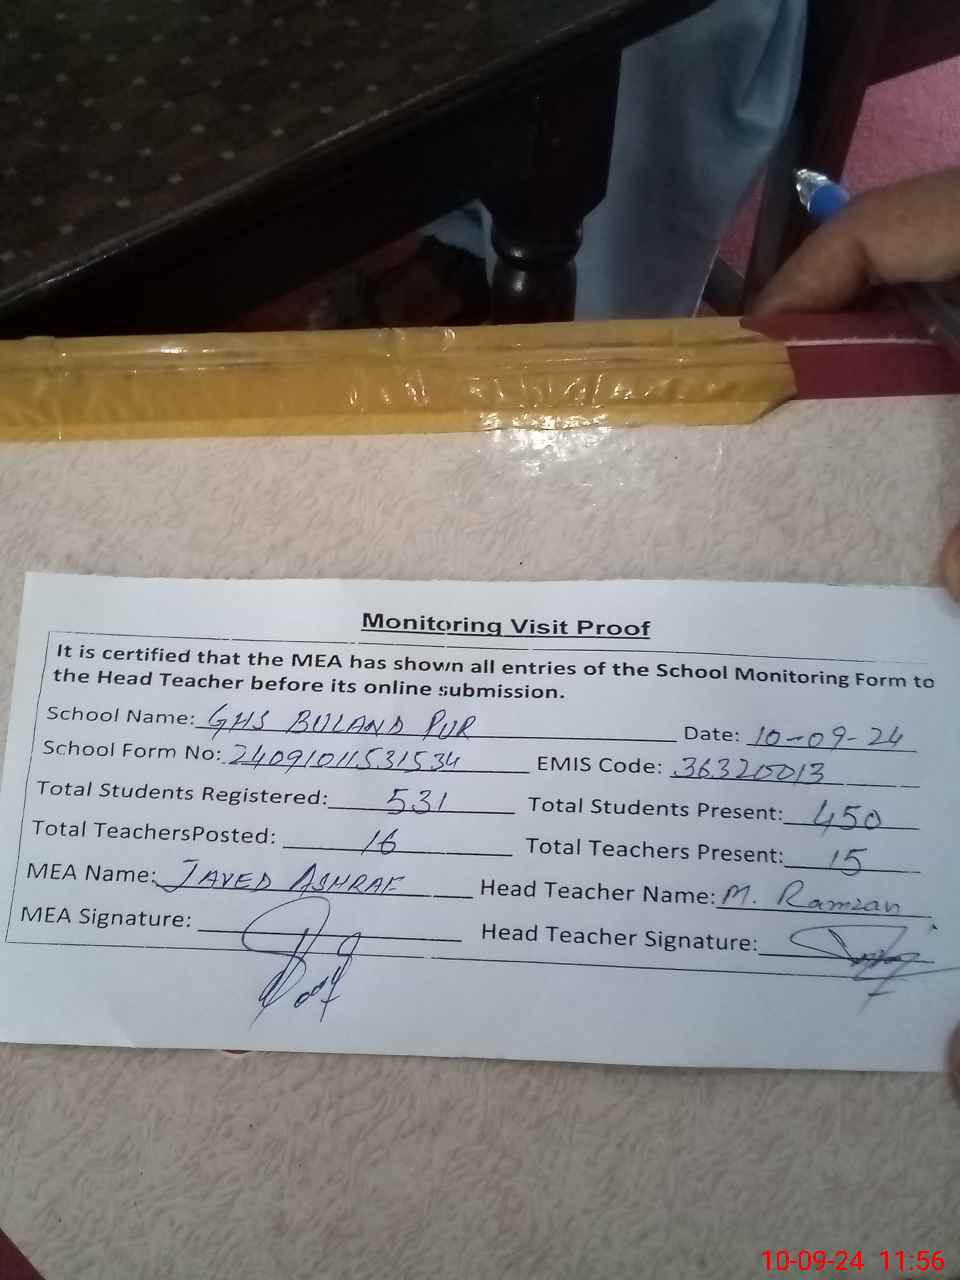 Monitoring Visit Proof
It is certified that the MEA has shown all entries of the School Monitoring Form to
the Head Teacher before its online submission.
School Name: GHS BULAND PUR Date: 10-09-24
School Form No: 24091011531534 EMIS Code: 36320013
Total Students Registered: 531 Total Students Present: 450
Total TeachersPosted: 16 Total Teachers Present: 15
MEA Name: JAVED ASHRAF Head Teacher Name: M. Ramzan
MEA Signature: Head Teacher Signature:
10-09-24 11:56